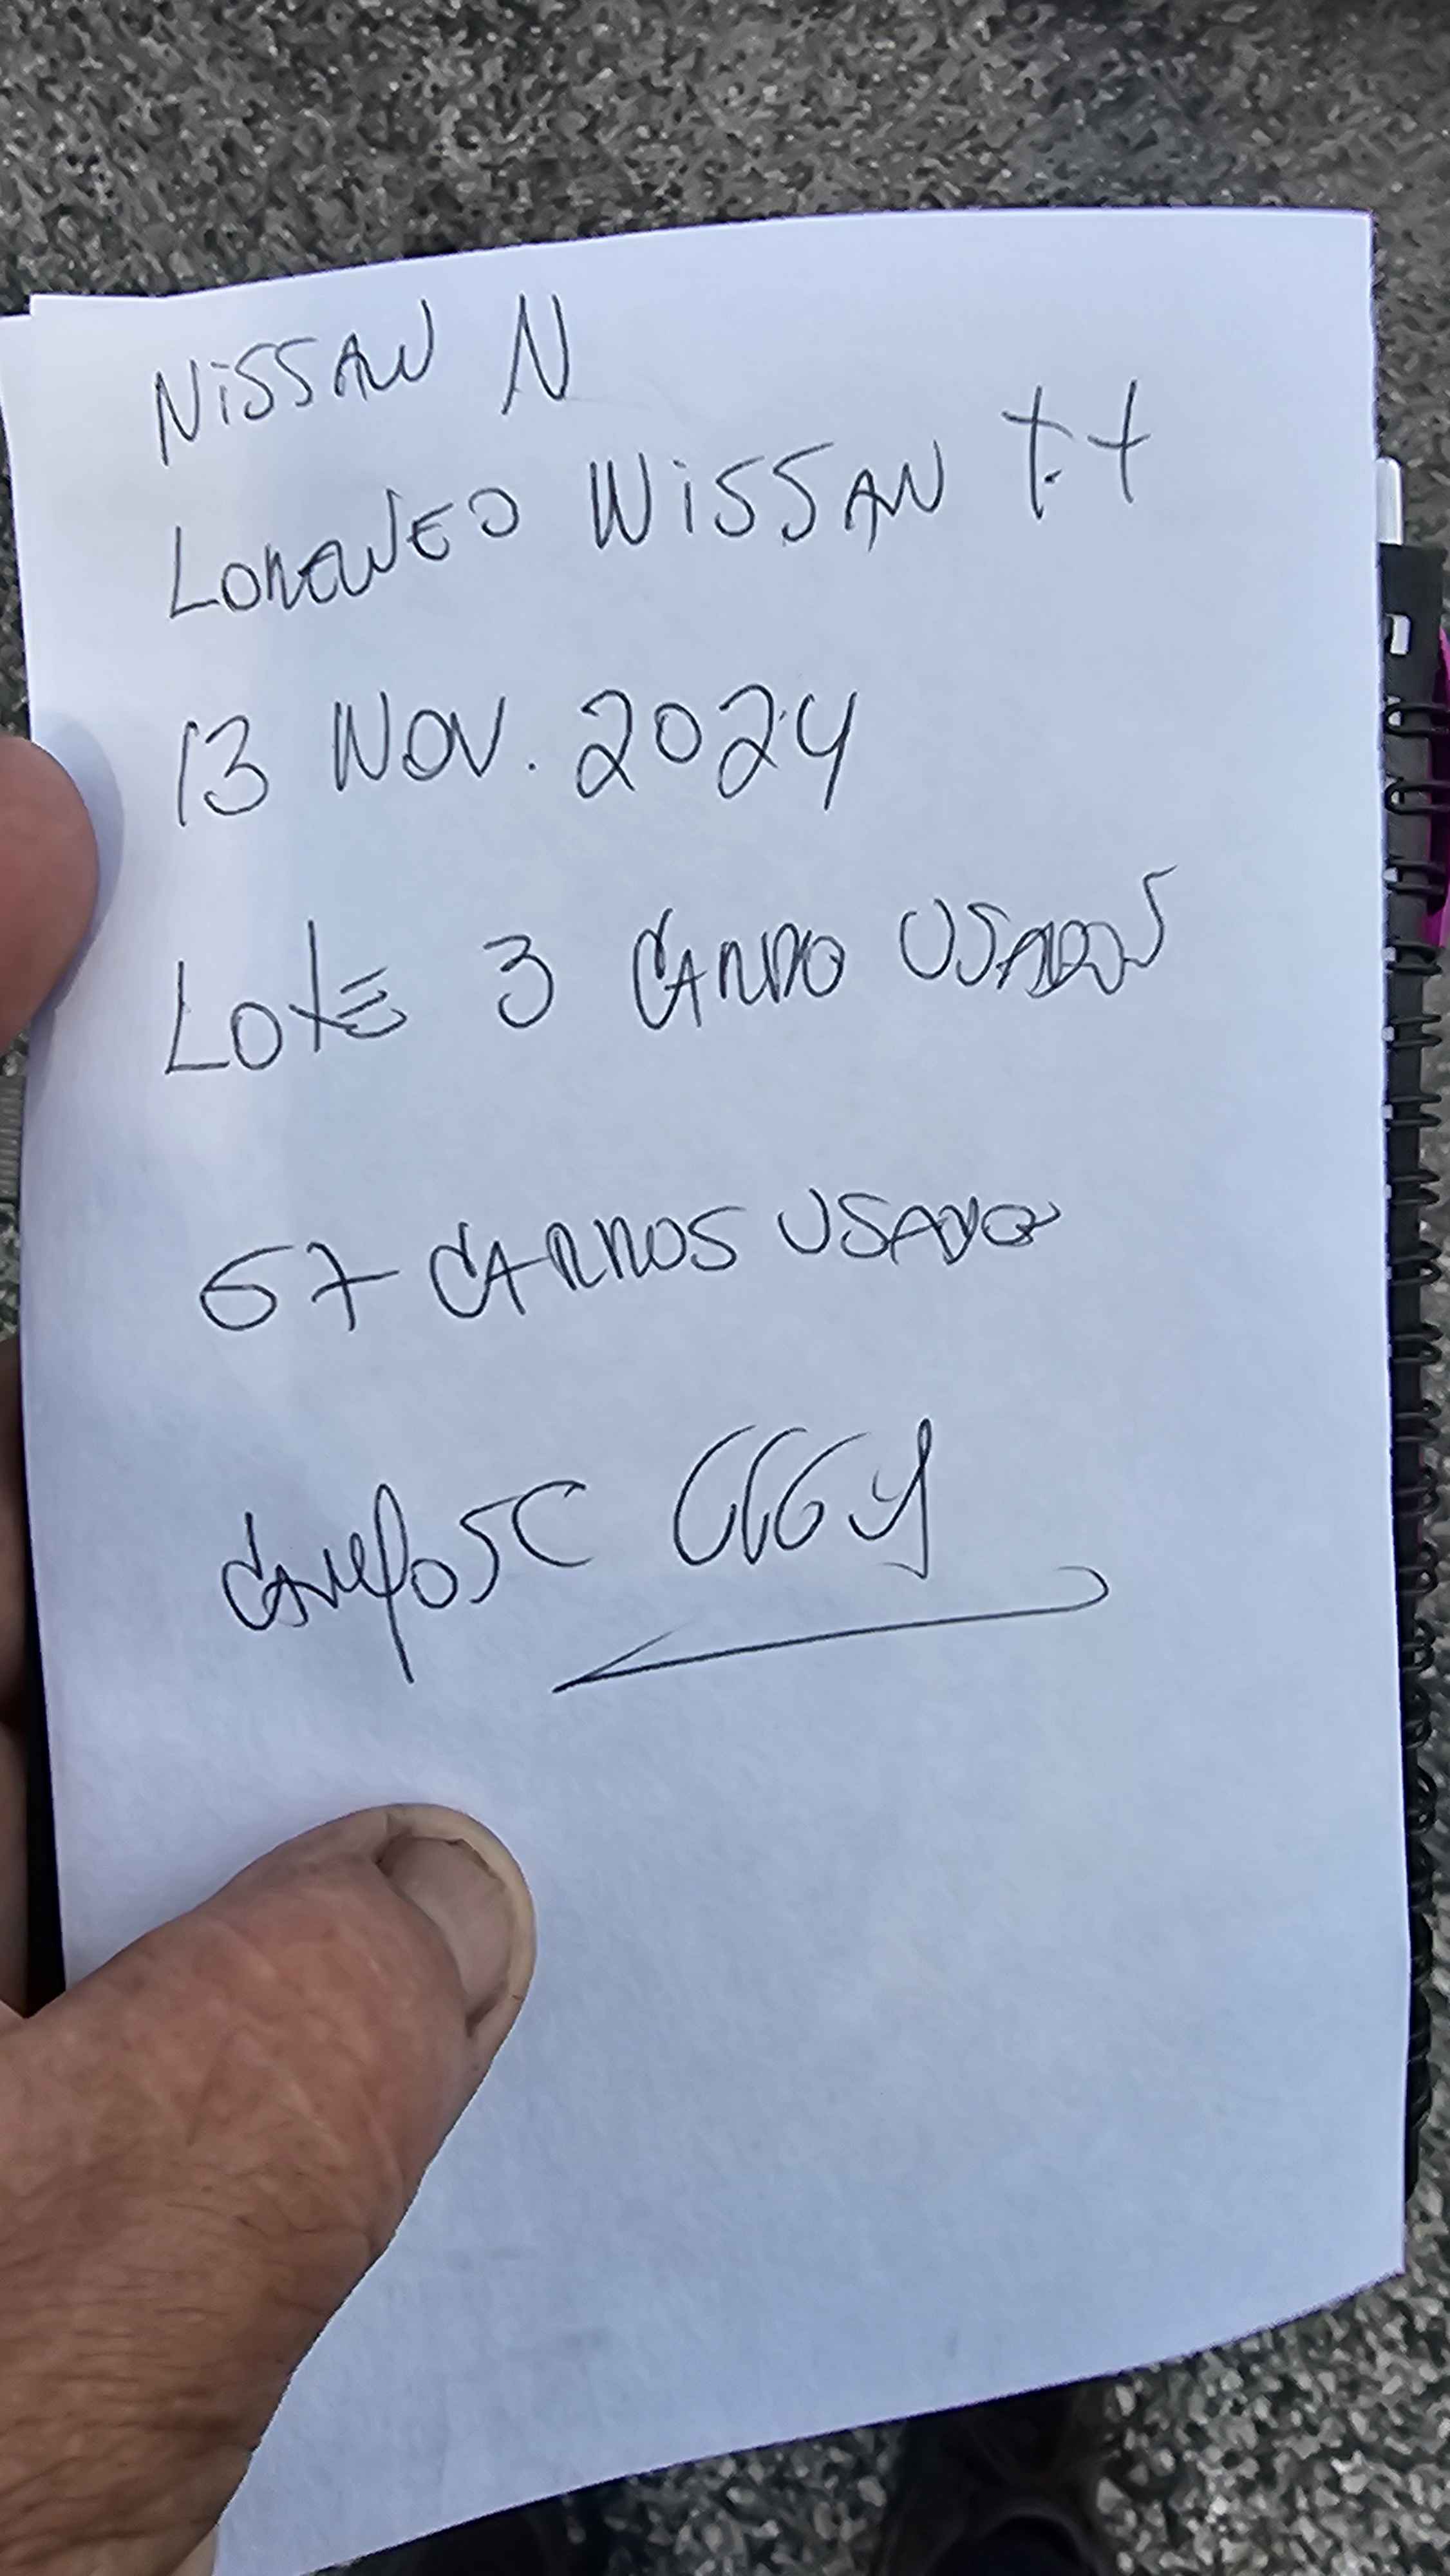 NISSAN N
LORENZO NISSAN
13 NOV. 2024
LOTE 3 CARRO USADOS
67 CARROS USADOS